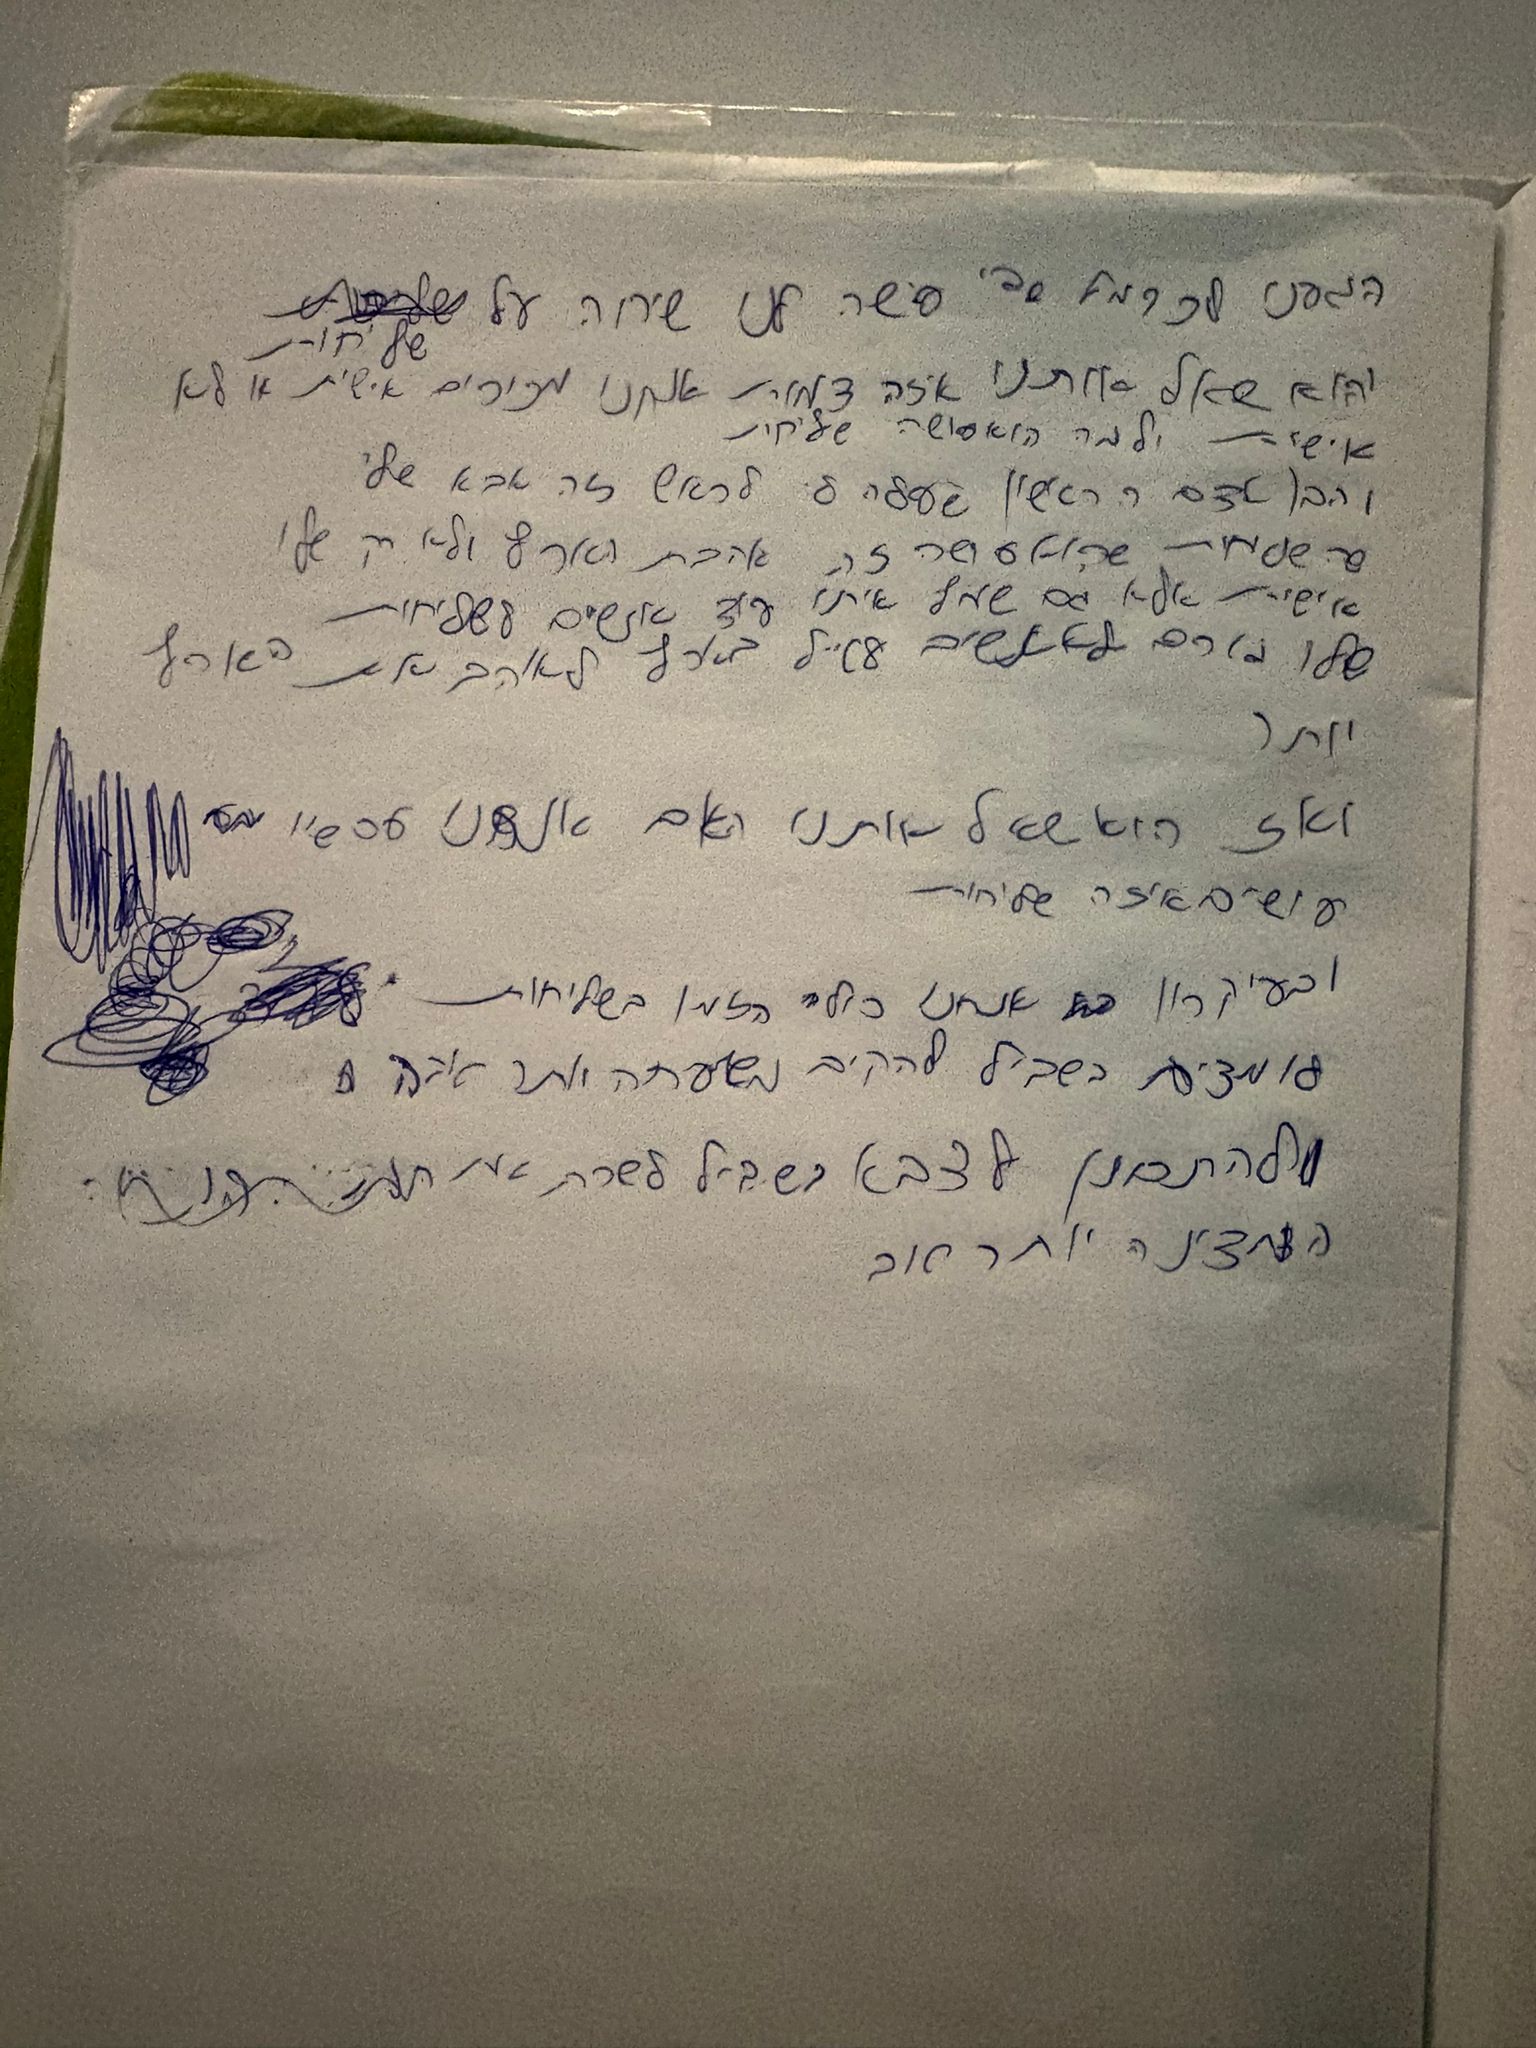 הגענו לכרמל צבי עשה לנו שיחה על
שליחות
והוא שאל אותנו איזה דמות אנחנו מכירים אישית או לא
אישית ולמה הוא עושה שליחות
והבן אדם הראשון שעלה לי לראש זה אבא שלי
שהשליחות שהוא עושה זה אהבת הארץ ולא רק שלו
אישית אלא גם שמלא איתו עוד אנשים שליחות
שלו גורם לאנשים לטייל בארץ לאהוב את הארץ
יותר
ואז הוא שאל אותנו האם אנחנו עכשיו
עושים איזה שליחות
ובעיקרון אנחנו כולי הזמן בשליחות
בשביל להקים משפחה ותר
ולהתכונן לצבא בשביל לשרת את
המדינה יותר טוב